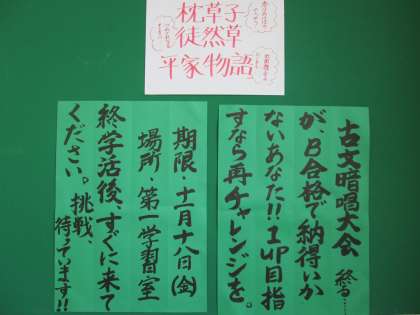 枕草子
徒然草
平家物語
古文暗唱大会 終る……
が、B合格で納得いか
ないあなた!! 1up目指
すなら再チャレンジを。
期限・十一月十八日(金)
場所・第一学習室
終学活後、すぐに来て
ください。挑戦、
待っています!!